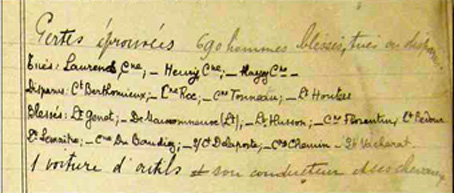 Pertes éprouvées 690 hommes blessés, tués ou disparus
Tués: Laurens, Cne, – Henry Cne, – Cne –
Disparus: Ct Berthomieux, – Cne Rec, – Cne Tonneau, – Lt Houles
Blessés: Lt Genet, – De Maisonneuve (Lt), – Lt Husson, – Cne Florentin, Lt Redour
Lt Lemaitre, – Cne Du Baudiez, – S/Ct Delaporte, – Cne Chemin – Lt Vacherat
1 voiture d'outils et son conducteur et ses chevaux